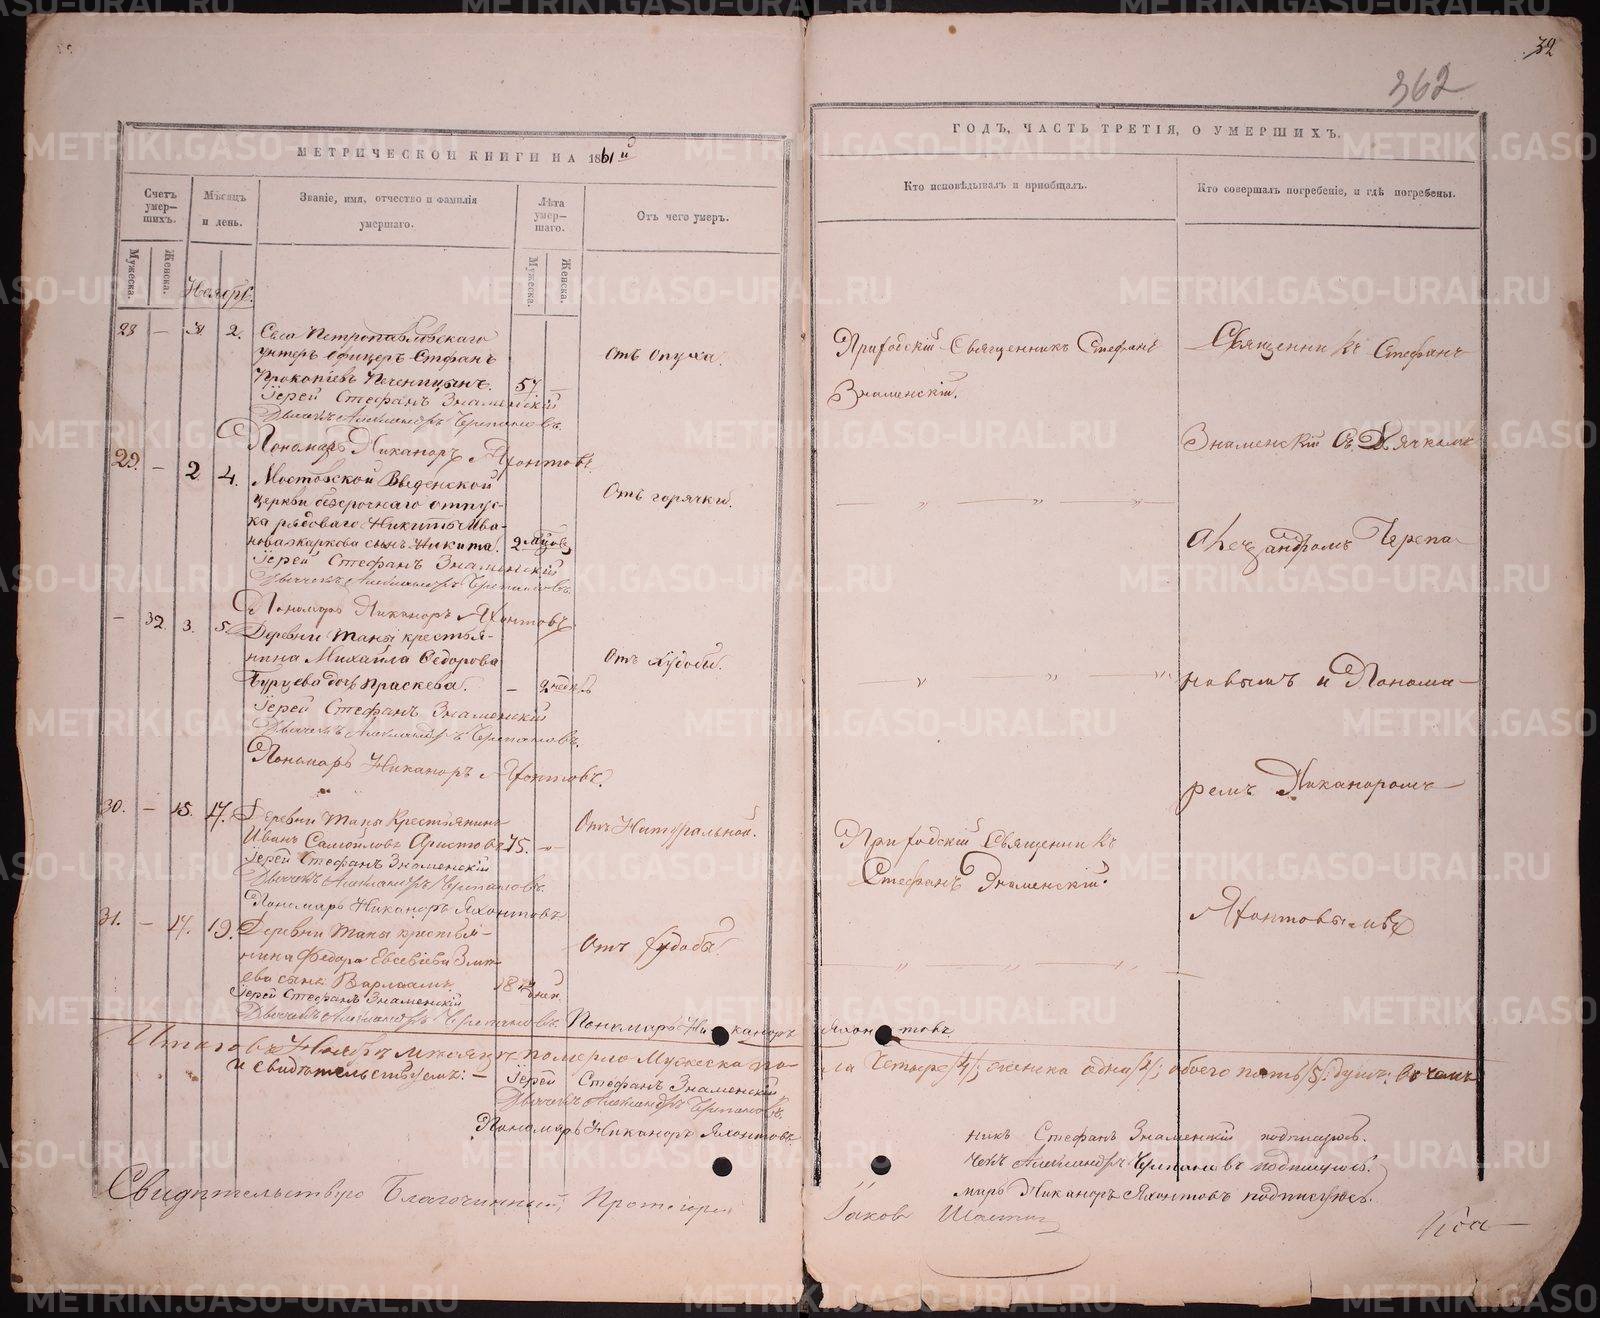 32
362
МЕТРИЧЕСКОЙ КНИГИ НА 1861й
ГОДЪ, ЧАСТЬ ТРЕТІЯ, О УМЕРШИХЪ.
Счетъ умер-шихъ.
Мужеска.
Женска.
Мѣсяцъ и день.
Званіе, имя, отчество и фамилія умершаго.
Лѣта умер-шаго.
Мужеска.
Женска.
Отъ чего умеръ.
Кто исповѣдывалъ и приобщалъ.
Кто совершалъ погребеніе, и гдѣ погребены.
Ноябрь.
28 — 2.
Села Петропавловскаго
унтеръ офицеръ Стефанъ
Прокопіевъ Печеницынъ. 57 —
Отъ опуха.
Приходскій Священникъ Стефанъ
Знаменскій.
Іерей Стефанъ Знаменскій
Дьячекъ Александръ Черепановъ.
Пономарь Никаноръ Яхонтовъ.
29. — 2 4.
Мостовской Введенской
церкви безсрочнаго отпус-
ка рядоваго Никиты Ива-
нова Жаркова сынъ Никита. 2 мѣсов.
Отъ горячки.
Іерей Стефанъ Знаменскій
Дьячекъ Александръ Черепановъ.
Пономарь Никаноръ Яхонтовъ.
— 32. 3. 5.
Деревни Таны крестья-
нина Михаила Федорова
Бурцева дочь Праскева. — 2 недѣль
Отъ худобы.
Іерей Стефанъ Знаменскій
Дьячекъ Александръ Черепановъ.
Пономарь Никаноръ Яхонтовъ.
30. — 15. 17.
Деревни Таны Крестьянинъ
Иванъ Самойловъ Аристовъ 75. —
Отъ Натуральной.
Приходскій Священникъ
Стефанъ Знаменскій.
Іерей Стефанъ Знаменскій
Дьячекъ Александръ Черепановъ.
Пономарь Никаноръ Яхонтовъ
31. — 17. 19.
Деревни Таны крестья-
нина Федора Евсевіева
ева сынъ Варлаамъ.
Отъ худобы.
Іерей Стефанъ Знаменскій
Дьячекъ Александръ Черепановъ. Пономарь Никаноръ Яхонтовъ
Священникъ Стефанъ
Знаменскій Съ Дьячкомъ
Александромъ Черепа-
новымъ и Понома-
ремъ Никаноромъ
Яхонтовымъ
Итого въ Ноябрѣ мѣсяцѣ померло Мужеска по-
ла Четыре /4/; женска одна /1/; обоего пять /5/ душъ: въ чемъ
и свидѣтельствуемъ: —
Іерей Стефанъ Знаменскій
Дьячекъ Александръ Черепановъ.
Пономарь Никаноръ Яхонтовъ
никъ Стефанъ Знаменскій подписуюсь.
чекъ Александръ Черепановъ подписуюсь.
марь Никаноръ Яхонтовъ подписуюсь.
Свидѣтельствую Благочинный, Протоіерей
Іаковъ